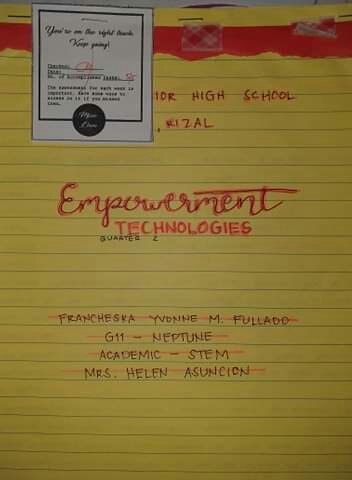 You're on the right track.
Keep going!
Checked:
Date:
No. of Accomplished Tasks:
The assessment for each week is
important. Have some ways to
access to it if you missed
them.
IOR HIGH SCHOOL
, RIZAL
Empowerment
TECHNOLOGIES
QUARTER 2
FRANCHESKA YVONNE M. FULLADO
G11 - NEPTUNE
ACADEMIC - STEM
MRS. HELEN ASUNCION